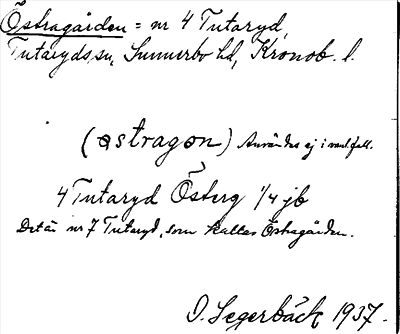 Östragården = nr 4 Tutaryd,
Tutaryds sn, Sunnerbo hd, Kronob. l.
(østragøn) Användes ej i mulfall.
4 Tutaryd Österg 1/4 jb
Det är nr 7 Tutaryd, som kallas Östragården.
O. Segerbäck 1937.